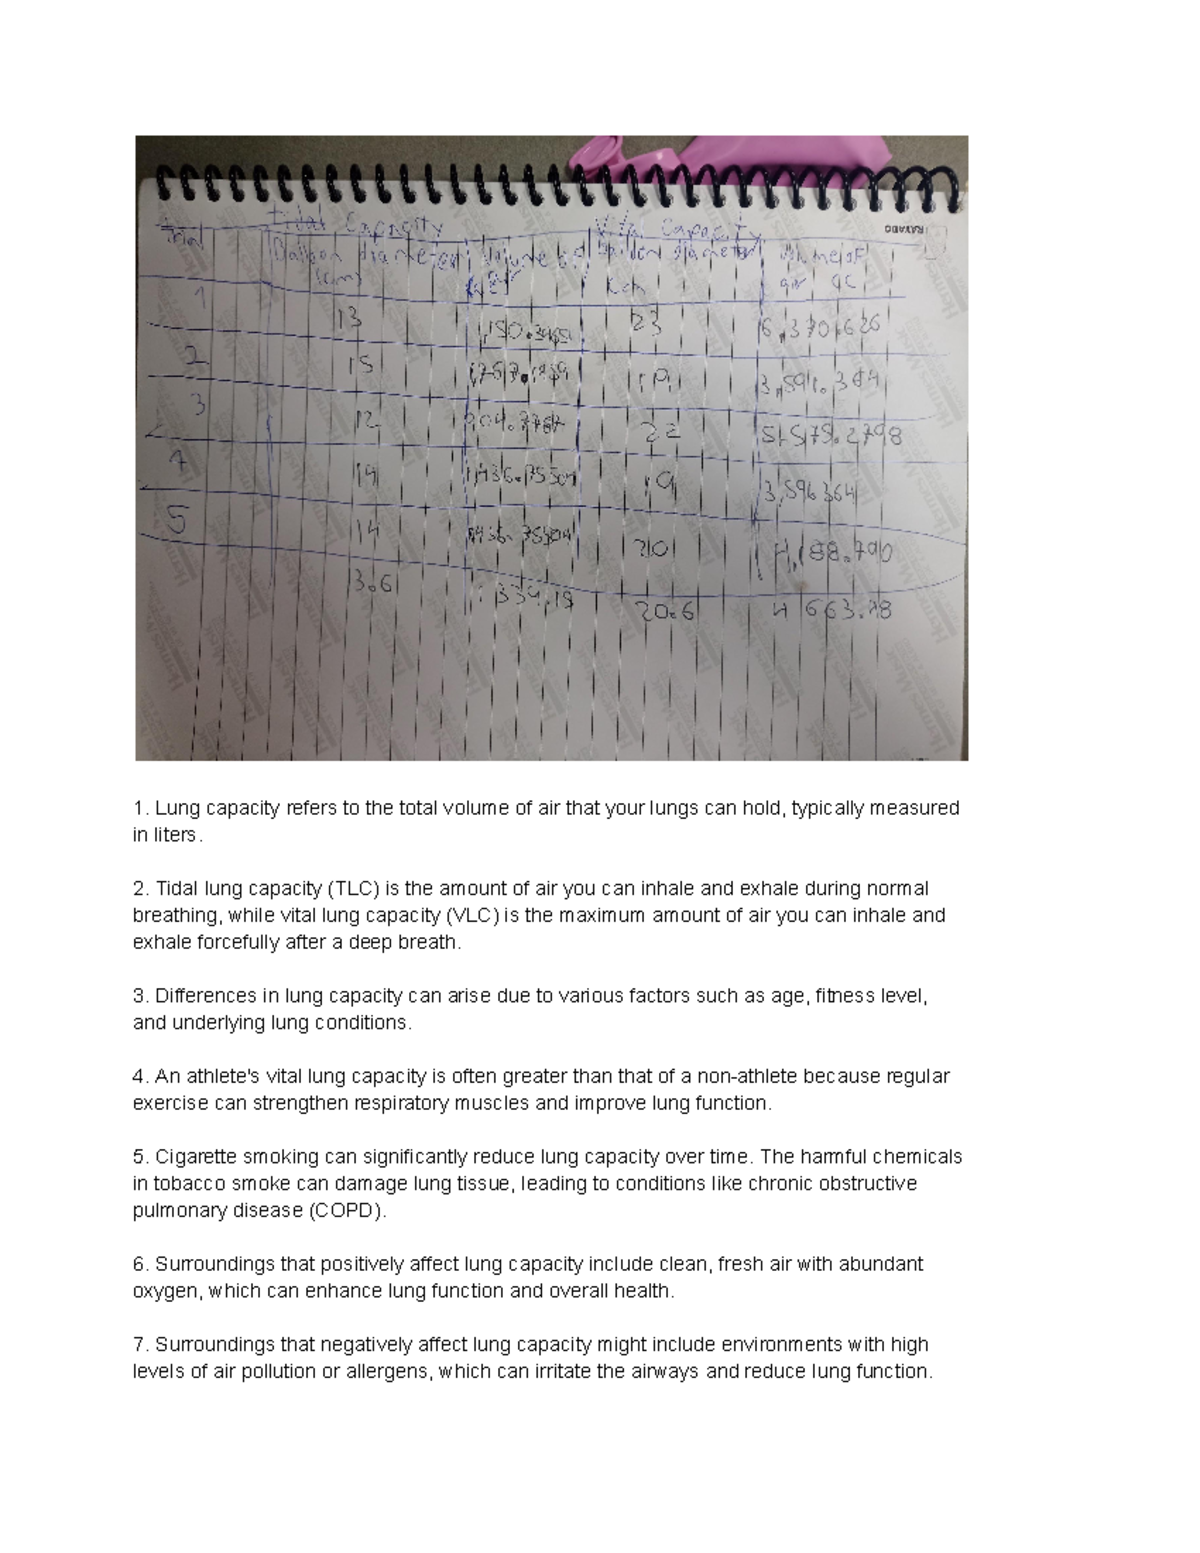 RAYADO
Tidal Capacity Vital Capacity
Trial Balloon diameter Volume of balloon diameter Volume of
(cm) air air
1 13 23 6,370.626
2 15 1,767. 19 3,591.364
3 12 904.7787 22 5,575.2798
4 14 1,436.75504 19 3,596364
5 14 1436.75504 20 4,188.790
3.6 334.19 20.6 4 663.
1. Lung capacity refers to the total volume of air that your lungs can hold, typically measured
in liters.
2. Tidal lung capacity (TLC) is the amount of air you can inhale and exhale during normal
breathing, while vital lung capacity (VLC) is the maximum amount of air you can inhale and
exhale forcefully after a deep breath.
3. Differences in lung capacity can arise due to various factors such as age, fitness level,
and underlying lung conditions.
4. An athlete's vital lung capacity is often greater than that of a non-athlete because regular
exercise can strengthen respiratory muscles and improve lung function.
5. Cigarette smoking can significantly reduce lung capacity over time. The harmful chemicals
in tobacco smoke can damage lung tissue, leading to conditions like chronic obstructive
pulmonary disease (COPD).
6. Surroundings that positively affect lung capacity include clean, fresh air with abundant
oxygen, which can enhance lung function and overall health.
7. Surroundings that negatively affect lung capacity might include environments with high
levels of air pollution or allergens, which can irritate the airways and reduce lung function.